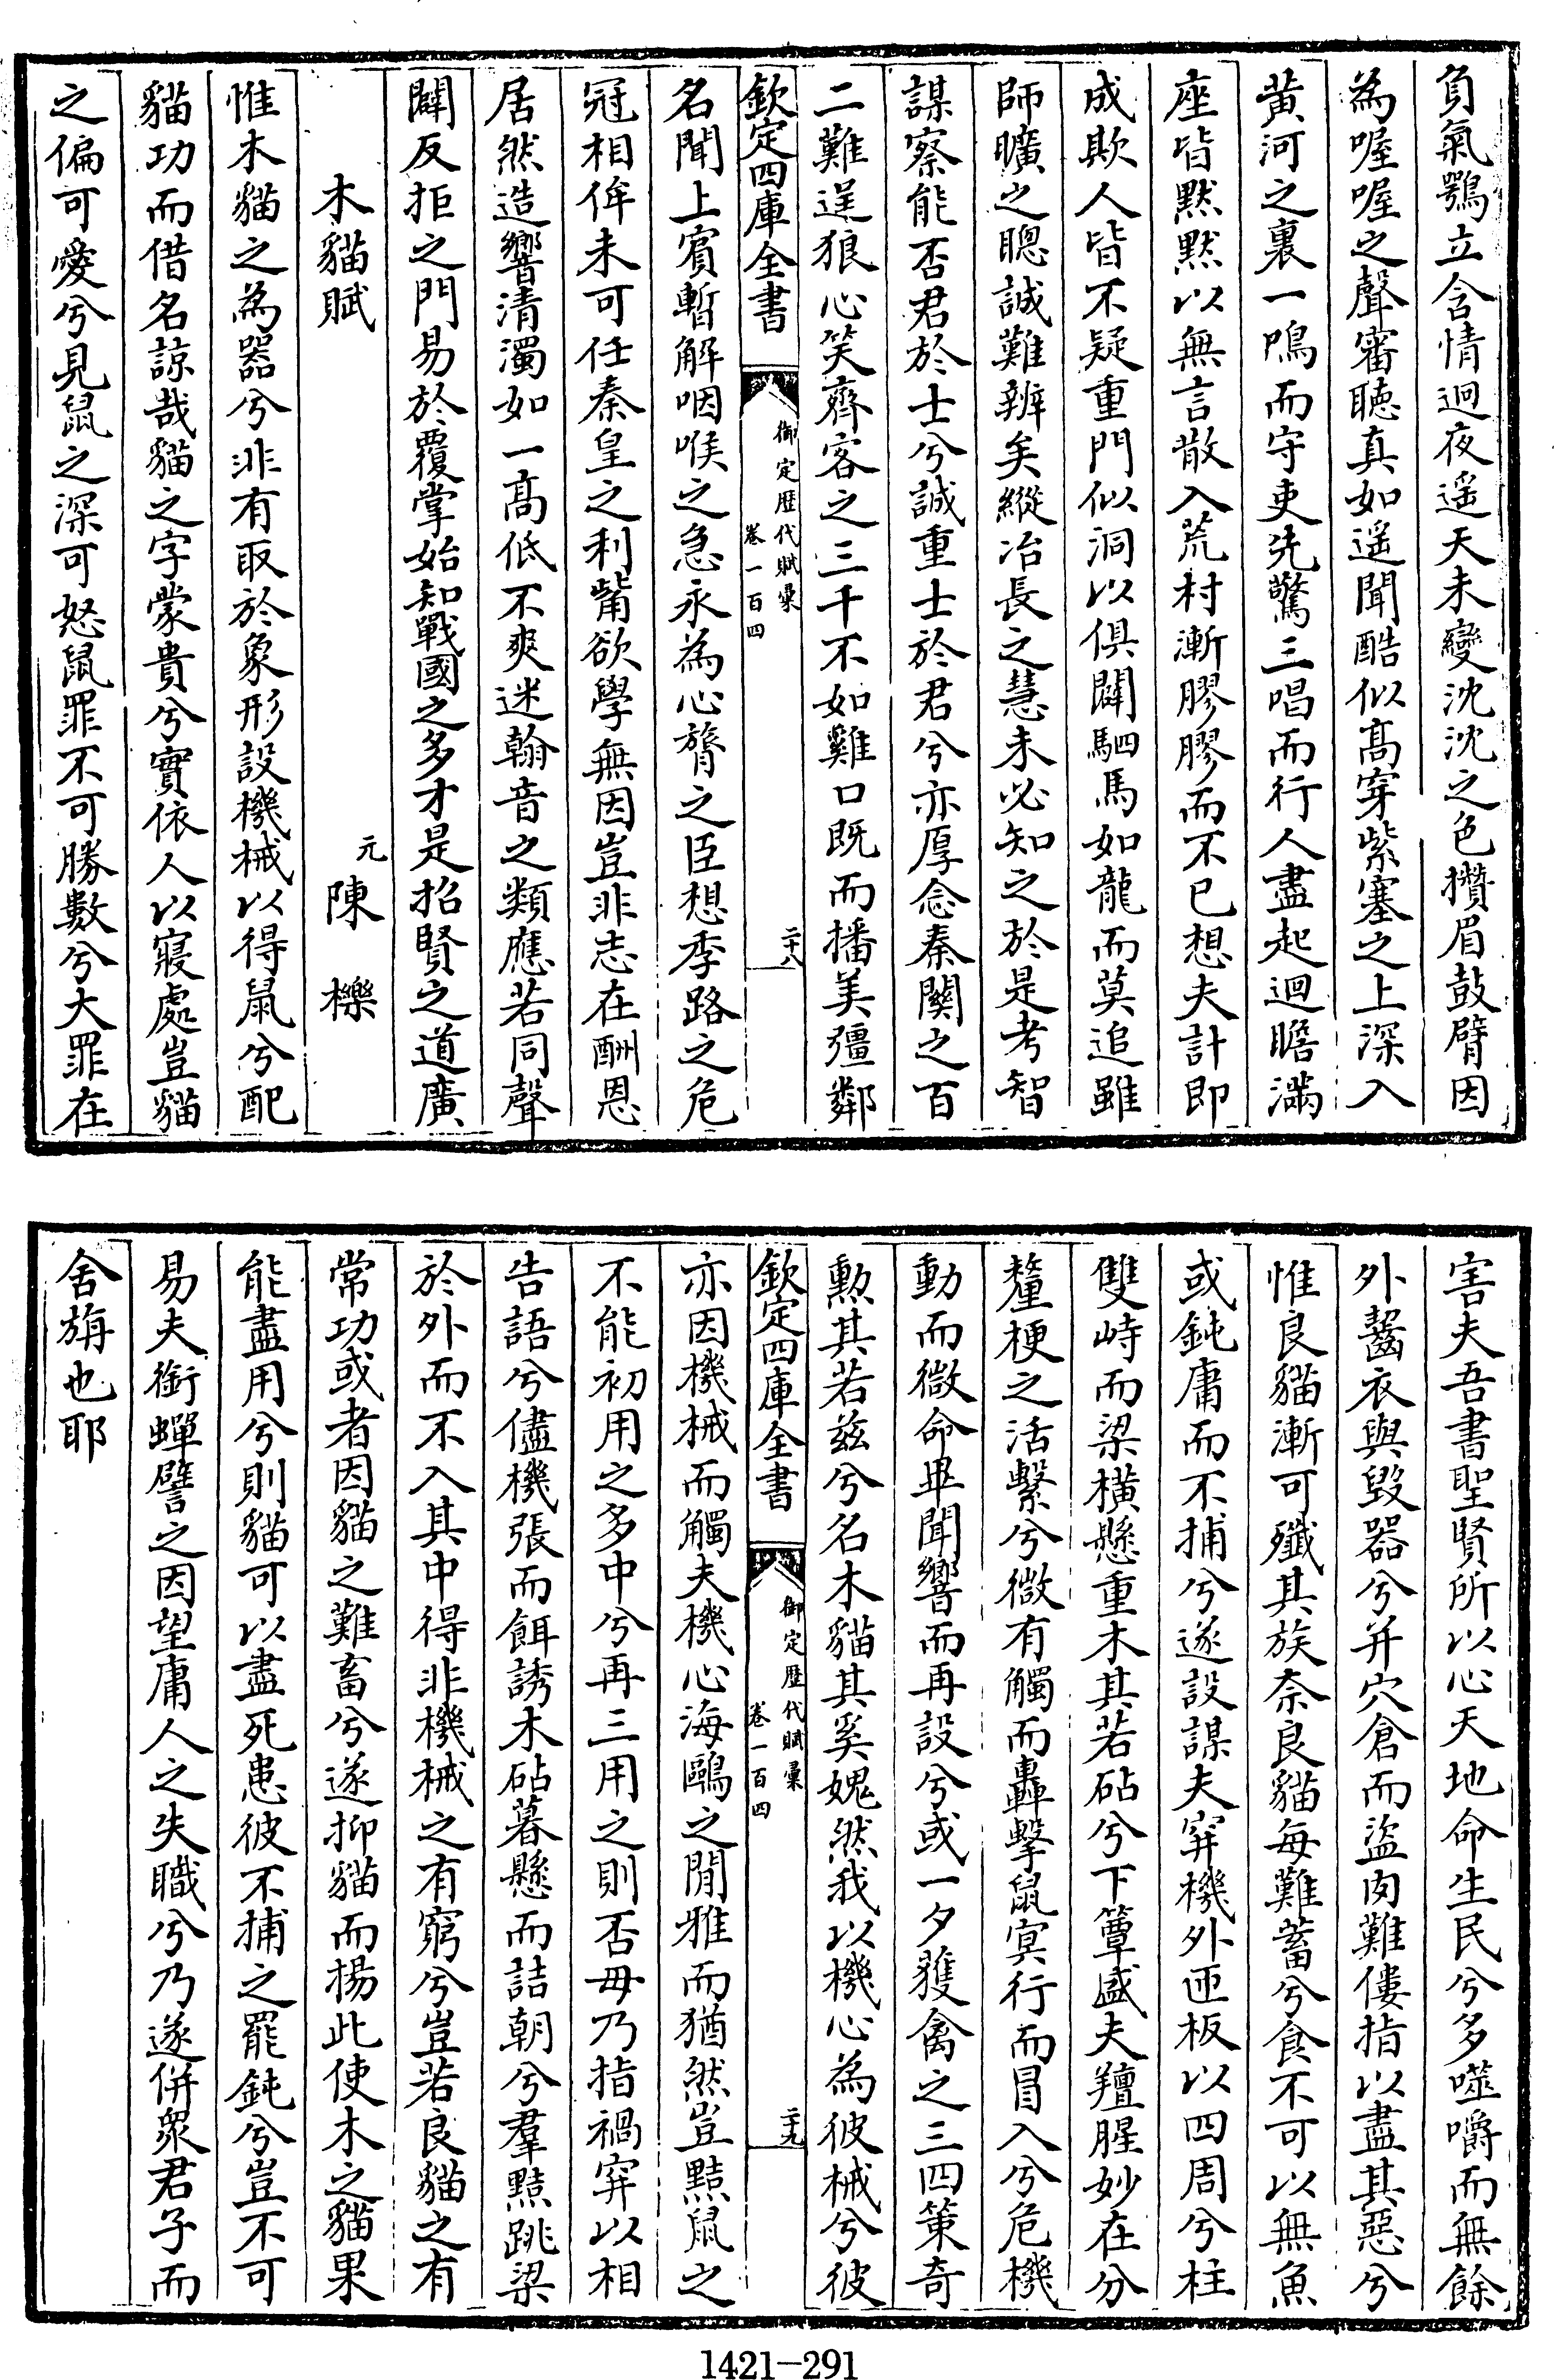 負氣鶚立含情迴夜遥天未變沈沈之色攢眉鼓臂因
為喔喔之聲審聽真如遥聞酷似髙穿紫塞之上深入
黄河之裏一鳴而守吏先驚三唱而行人盡起迴瞻滿
座皆默默以無言散入荒村漸膠膠而不已想夫計即
成欺人皆不疑重門似洞以俱闢駟馬如龍而莫追雖
師曠之聰誠難辨矣縱冶長之慧未必知之於是考智
謀察能否君於士兮誠重士於君兮亦厚念秦關之百
二難逞狼心笑齊客之三千不如雞口既而播美彊鄰
欽定四庫全書
御定歴代賦彙
卷一百四
二十八
名聞上賓暫解咽喉之急永為心膂之臣想季路之危
冠相侔未可任秦皇之利觜欲學無因豈非志在酬恩
居然造響清濁如一髙低不爽迷翰音之類應若同聲
闢反拒之門易於覆掌始知戰國之多才是招賢之道廣
木貓賦
元陳櫟
惟木貓之為器兮非有取於象形設機械以得鼠兮配
貓功而借名諒哉貓之字蒙貴兮實依人以寢處豈貓
之偏可愛兮見鼠之深可怒鼠罪不可勝數兮大罪在
害夫吾書聖賢所以心天地命生民兮多噬嚼而無餘
外齧衣與毁器兮并穴倉而盜肉難僂指以盡其惡兮
惟良貓漸可殲其族奈良貓每難蓄兮食不可以無魚
或鈍庸而不捕兮遂設謀夫穽機外匝板以四周兮柱
雙峙而梁横懸重木其若砧兮下簟盛夫羶腥妙在分
釐梗之活繫兮微有觸而轟擊鼠冥行而冒入兮危機
動而微命畢聞響而再設兮或一夕獲禽之三四策奇
勲其若兹兮名木貓其奚媿然我以機心為彼械兮彼
欽定四庫全書
御定歴代賦彙
卷一百四
二十九
亦因機械而觸夫機心海鷗之閒雅而猶然豈黠鼠之
不能初用之多中兮再三用之則否毋乃指禍穽以相
告語兮儘機張而餌誘木砧暮懸而詰朝兮羣黠跳梁
於外而不入其中得非機械之有窮兮豈若良貓之有
常功或者因貓之難畜兮遂抑貓而揚此使木之貓果
能盡用兮則貓可以盡死患彼不捕之罷鈍兮豈不可
易夫銜蟬譬之因望庸人之失職兮乃遂併衆君子而
舍旃也耶
1421-291